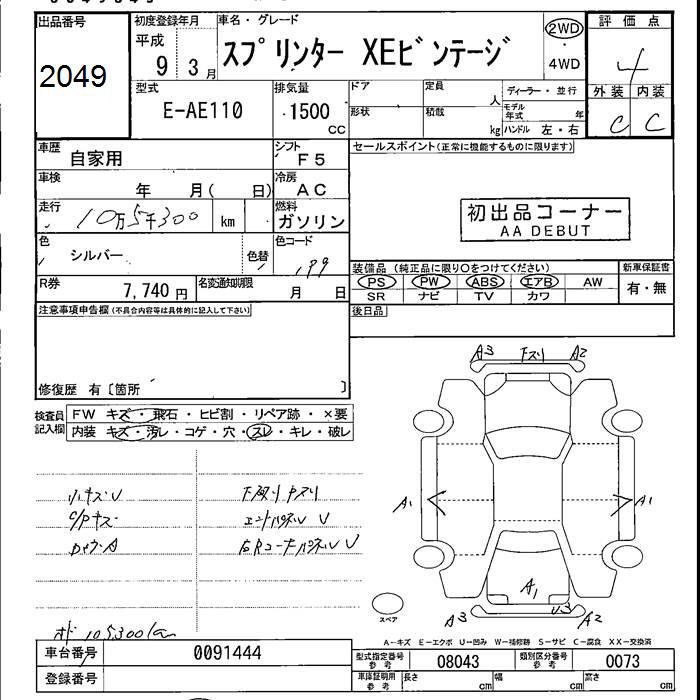 出品番号
2049
初度登録年月
平成
9 3月
車名・グレード
スプリンター XEビンテージ
2WD
・
4WD
評価点
4
外装 内装
C C
型式
E-AE110
排気量
1500
cc
ドア
定員
人
形状
積載
kg
ディーラー・並行
モデル年式 年
ハンドル 左・右
車歴
自家用
シフト
F5
車検
年 月( 日)
冷房
AC
走行
10万5千300
km
燃料
ガソリン
色
シルバー
色替
色カラーコード
199
R券
7,740円
名変通知期限
月 日
セールスポイント(正常に機能するものに限ります)
初出品コーナー
AA DEBUT
装備品 (純正品に限り○をつけてください)
PS PW ABS エアB AW
SR ナビ TV カワ
新車保証書
有・無
後日品
注意事項申告欄(不具合内容等は具体的に記入して下さい)
修復歴 有〔箇所 〕
検査員記入欄
FW キズ・飛石・ヒビ割・リペア跡・×要
内装 キズ・汚レ・コゲ・穴・スレ・キレ・破レ
小キズU
C/Pキズ
DトウA
下廻りサスリ
エンドパネルU
右RコーナーパネルU
オド 105300km
A3 下スリ A2
A1
A1
A1
U3
A3
A2
スペア
A-キズ E-エクボ U-凹み W-補修跡 S-サビ C-腐食 XX-交換済
車台番号
0091444
登録番号
型式指定番号
参考
08043
類別区分番号
参考
0073
車庫証明用
参考
長さ cm
幅 cm
高さ cm